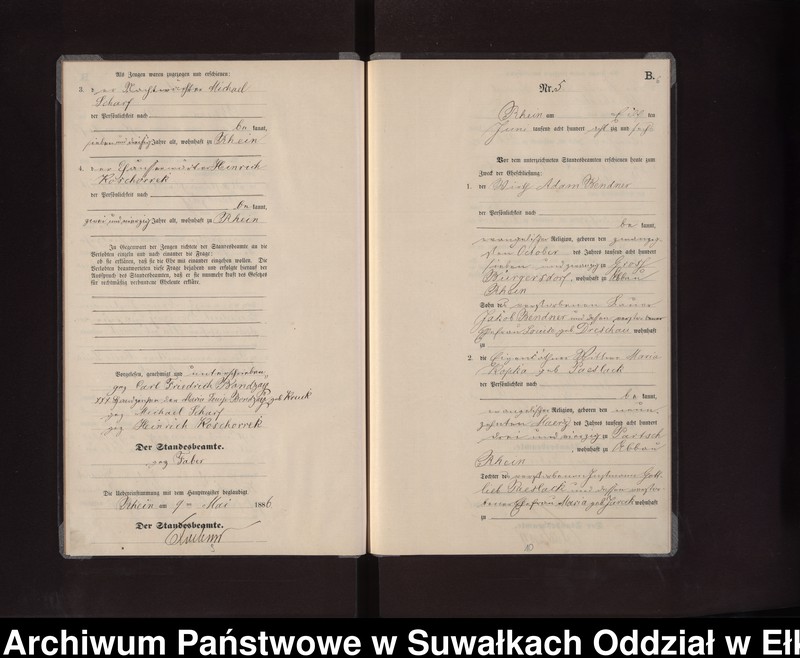 Als Zeugen waren zugezogen und erschienen:
3. der Nachtwächter Michael
Scharf
der Persönlichkeit nach
be kannt,
Jahre alt, wohnhaft zu Rhein
4. der Heinrich
Koschorrek
der Persönlichkeit nach
be kannt,
zwei und vierzig Jahre alt, wohnhaft zu Rhein
In Gegenwart der Zeugen richtete der Standesbeamte an die
Verlobten einzeln und nach einander die Frage:
ob sie erklären, daß sie die Ehe mit einander eingehen wollen. Die
Verlobten beantworteten diese Frage bejahend und erfolgte hierauf der
Ausspruch des Standesbeamten, daß er sie nunmehr kraft des Gesetzes
für rechtmäßig verbundene Eheleute erkläre.
Vorgelesen, genehmigt und unterschrieben
gez Carl Friedrich Bondzay
XXX Handzeichen der Maria Bondzay geb Kruck
gez Michael Scharf
gez Heinrich Koschorrek
Der Standesbeamte.
gez Faber
Die Uebereinstimmung mit dem Hauptregister beglaubigt
Rhein am 9ten Mai 1886
Der Standesbeamte.
B.
Nr. 5
Rhein am ten
Juni tausend acht hundert achtzig und sechs
Vor dem unterzeichneten Standesbeamten erschienen heute zum
Zweck der Eheschließung:
1. der Wirth Adam Bendner
der Persönlichkeit nach
be kannt,
evangelischer Religion, geboren den zwanzig
sten October des Jahres tausend acht hundert
sieben und zwanzig zu Gross
Bürgersdorf, wohnhaft zu Abbau
Rhein
Sohn des verstorbenen
Jakob Bendner und dessen verstorbener
Ehefrau Louise geb Dreschau wohnhaft
zu
2. die Wittwe Maria
Kopka geb Paeslack
der Persönlichkeit nach
be kannt,
evangelischer Religion, geboren den neun
zehnten Maerz des Jahres tausend acht hundert
drei und vierzig zu Partsch
, wohnhaft zu Abbau
Rhein
Tochter des verstorbenen Instmann Gott
lieb Paeslack und dessen verstor
benen Ehefrau Maria geb wohnhaft
zu
10
Archiwum Państwowe w Suwałkach Oddział w Ełk